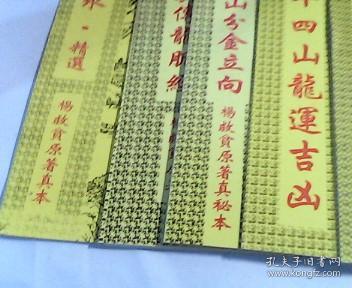 精選
楊救貧原著真本
龍
山分金立向
楊救貧原著真秘本
四山龍運吉凶
孔夫子旧书网
www.kongfz.com